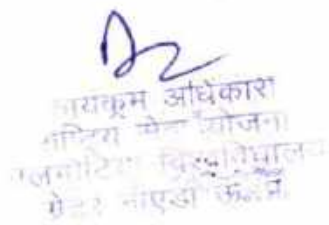 कार्यक्रम अधिकारी
राष्ट्रिय सेवा योजना
विश्वविद्यालय
ग्रेटर नोएडा ऊ.प्र.